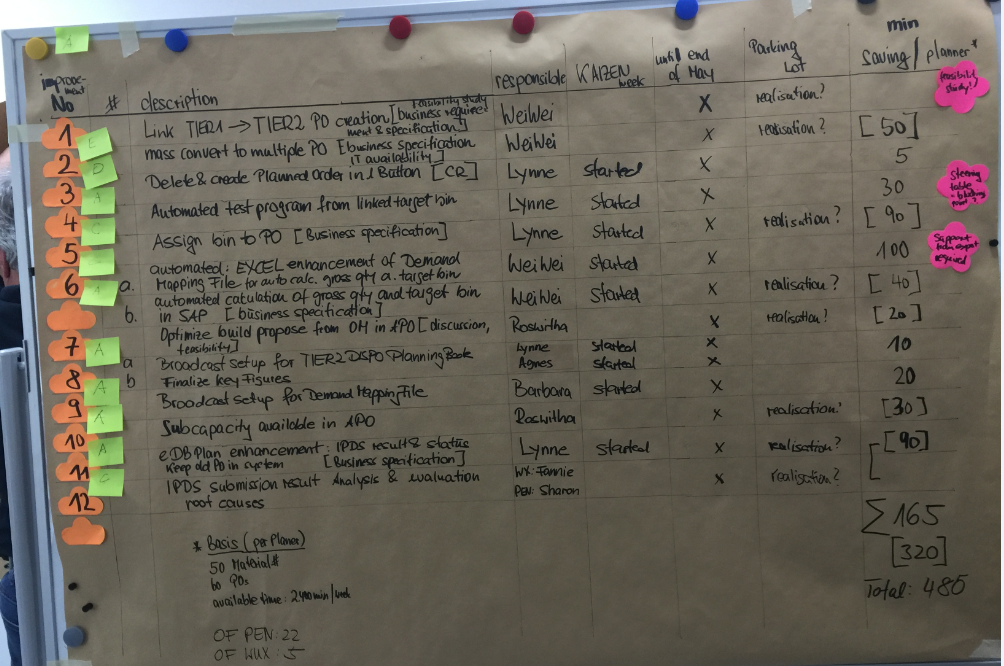 A
improve-
ment
No # description responsible KAIZEN week until end of May Parking Lot min saving / planner*
feasibility study?
1 Link TIER1 → TIER2 PO creation [business require-
ment & specification] feasibility study WeiWei X realisation?
E
2 mass convert to multiple PO [business specification
IT availability] WeiWei X realisation? [50]
D
3 Delete & create Planned Order in 1 Button [CR] Lynne started X 5
A
4 Automated test program from linked target bin Lynne started X 30
C
5 Assign bin to PO [Business specification] Lynne started X realisation? [90]
6 a. automated: EXCEL enhancement of Demand
Mapping File to auto calc. gross qty a. target bin WeiWei started X 100
A
b. automated calculation of gross qty and target bin
in SAP [business specification] WeiWei started X realisation? [40]
7 Optimize build propose from OH in APO [discussion,
feasibility] Roswitha X realisation? [20]
A
8 a Broadcast setup for TIER2 DISPO Planning Book Lynne started X 10
b Finalize key Figures Agnes started X
A
9 Broadcast setup for Demand Mapping File Barbara started X 20
A
10 Subcapacity available in APO Roswitha X realisation? [30]
A
11 eDB Plan enhancement: IPDS result & status
keep old PO in system [Business specification] Lynne started X realisation? [90]
12 IPDS submission result Analysis & evaluation
root causes WX: Fannie
PEN: Sharon X realisation?
Steering table
Support from expert required
Σ 165
[320]
Total: 485
* Basis (per Planer)
50 Material#
60 POs
available time: 2400min/week
OF PEN: 22
OF WUX: 5